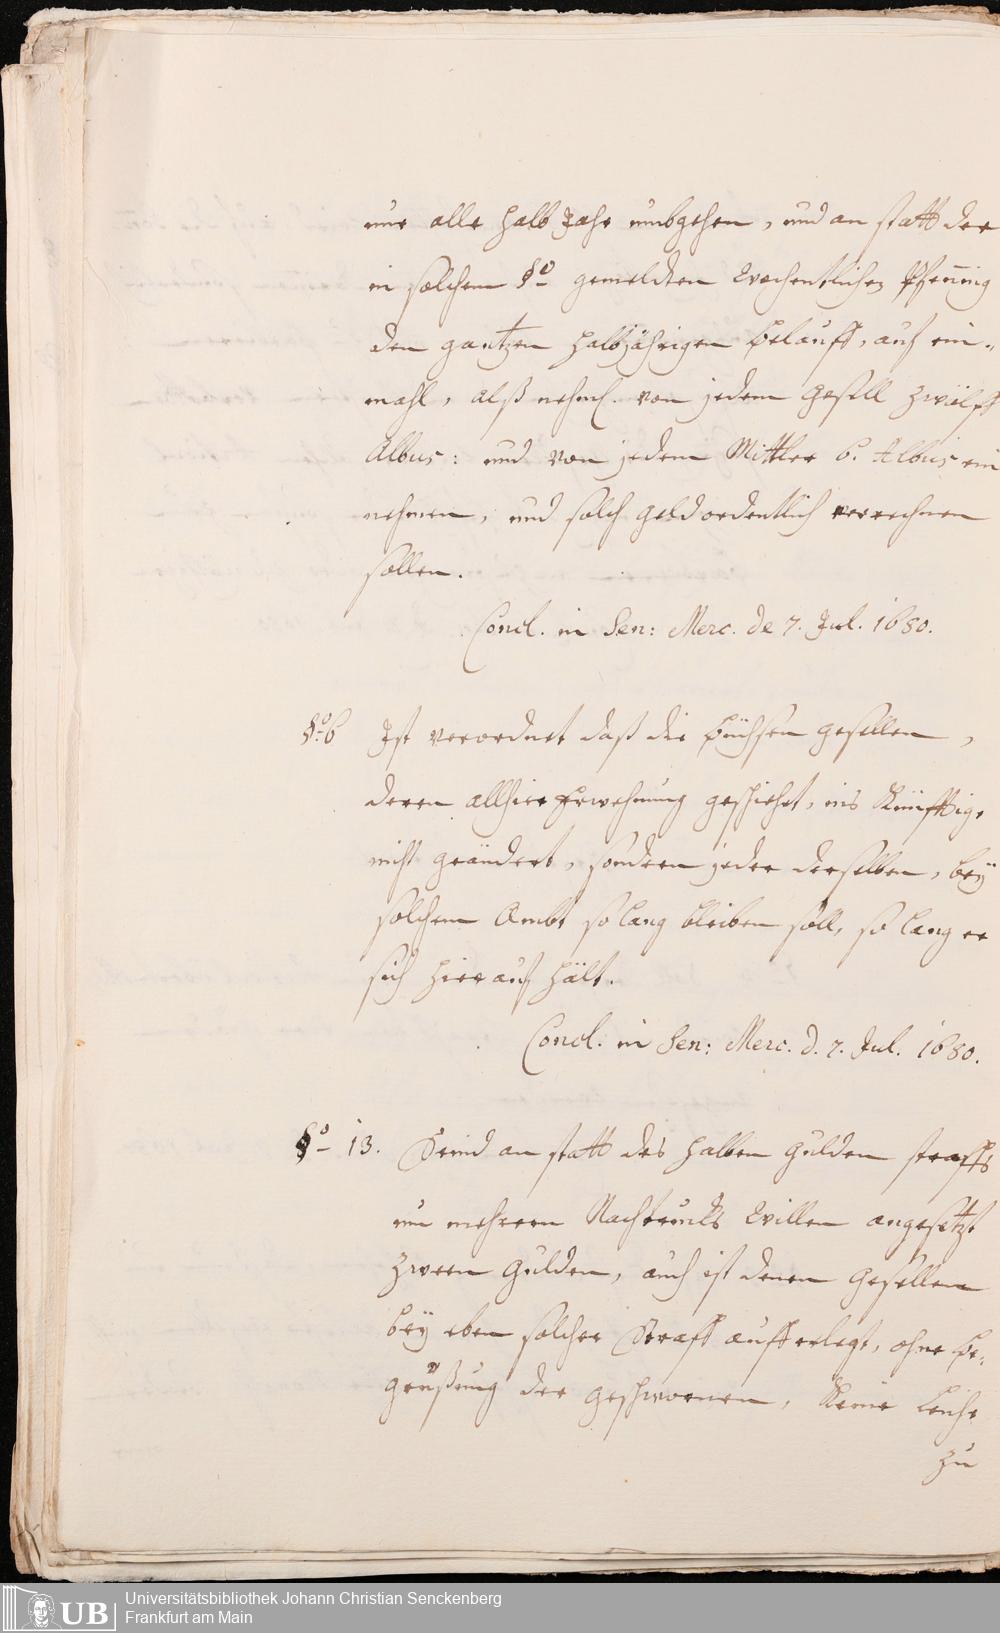 nur alle halb Jahr umbgehen, und an statt der
in solchem §o gemeldten Wochentlichen Pfenning
den gantzen halbjährigen belauff, auf ein-
mahl, alß nehml. von jedem gesell zwölff
Albus: und von jedem Mittler 6. Albus ein
nehmen, und solch geld ordentlich verrechnen
sollen.
Concl. in Sen: Merc. de 7. Jul. 1680.
§o 6 Ist verordnet daß die büchsen gesellen,
deren allhier Erwehnung geschiehet, ins Künfftige
nicht geändert, sondern jeder derselben, beÿ
solchem Ambt so lang bleiben soll, so lang er
sich hierauf hält.
Concl. in Sen: Merc. d. 7. Jul. 1680.
§o 13. Seind an statt des halben gulden straffs
um mehrern Nachtrucks Willen angesetzt
zween gulden, auch ist denen gesellen
beÿ eben solcher Straff aufferlegt, ohne be-
grüßung der geschwornen, Keine Leiche
zu
Universitätsbibliothek Johann Christian Senckenberg
Frankfurt am Main
UB